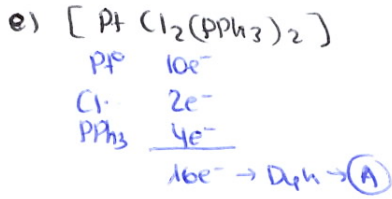 e) [Pt Cl₂(PPh₃)₂]
Pt⁰ 10e⁻
Cl· 2e⁻
PPh₃ 4e⁻
16e⁻ → → A